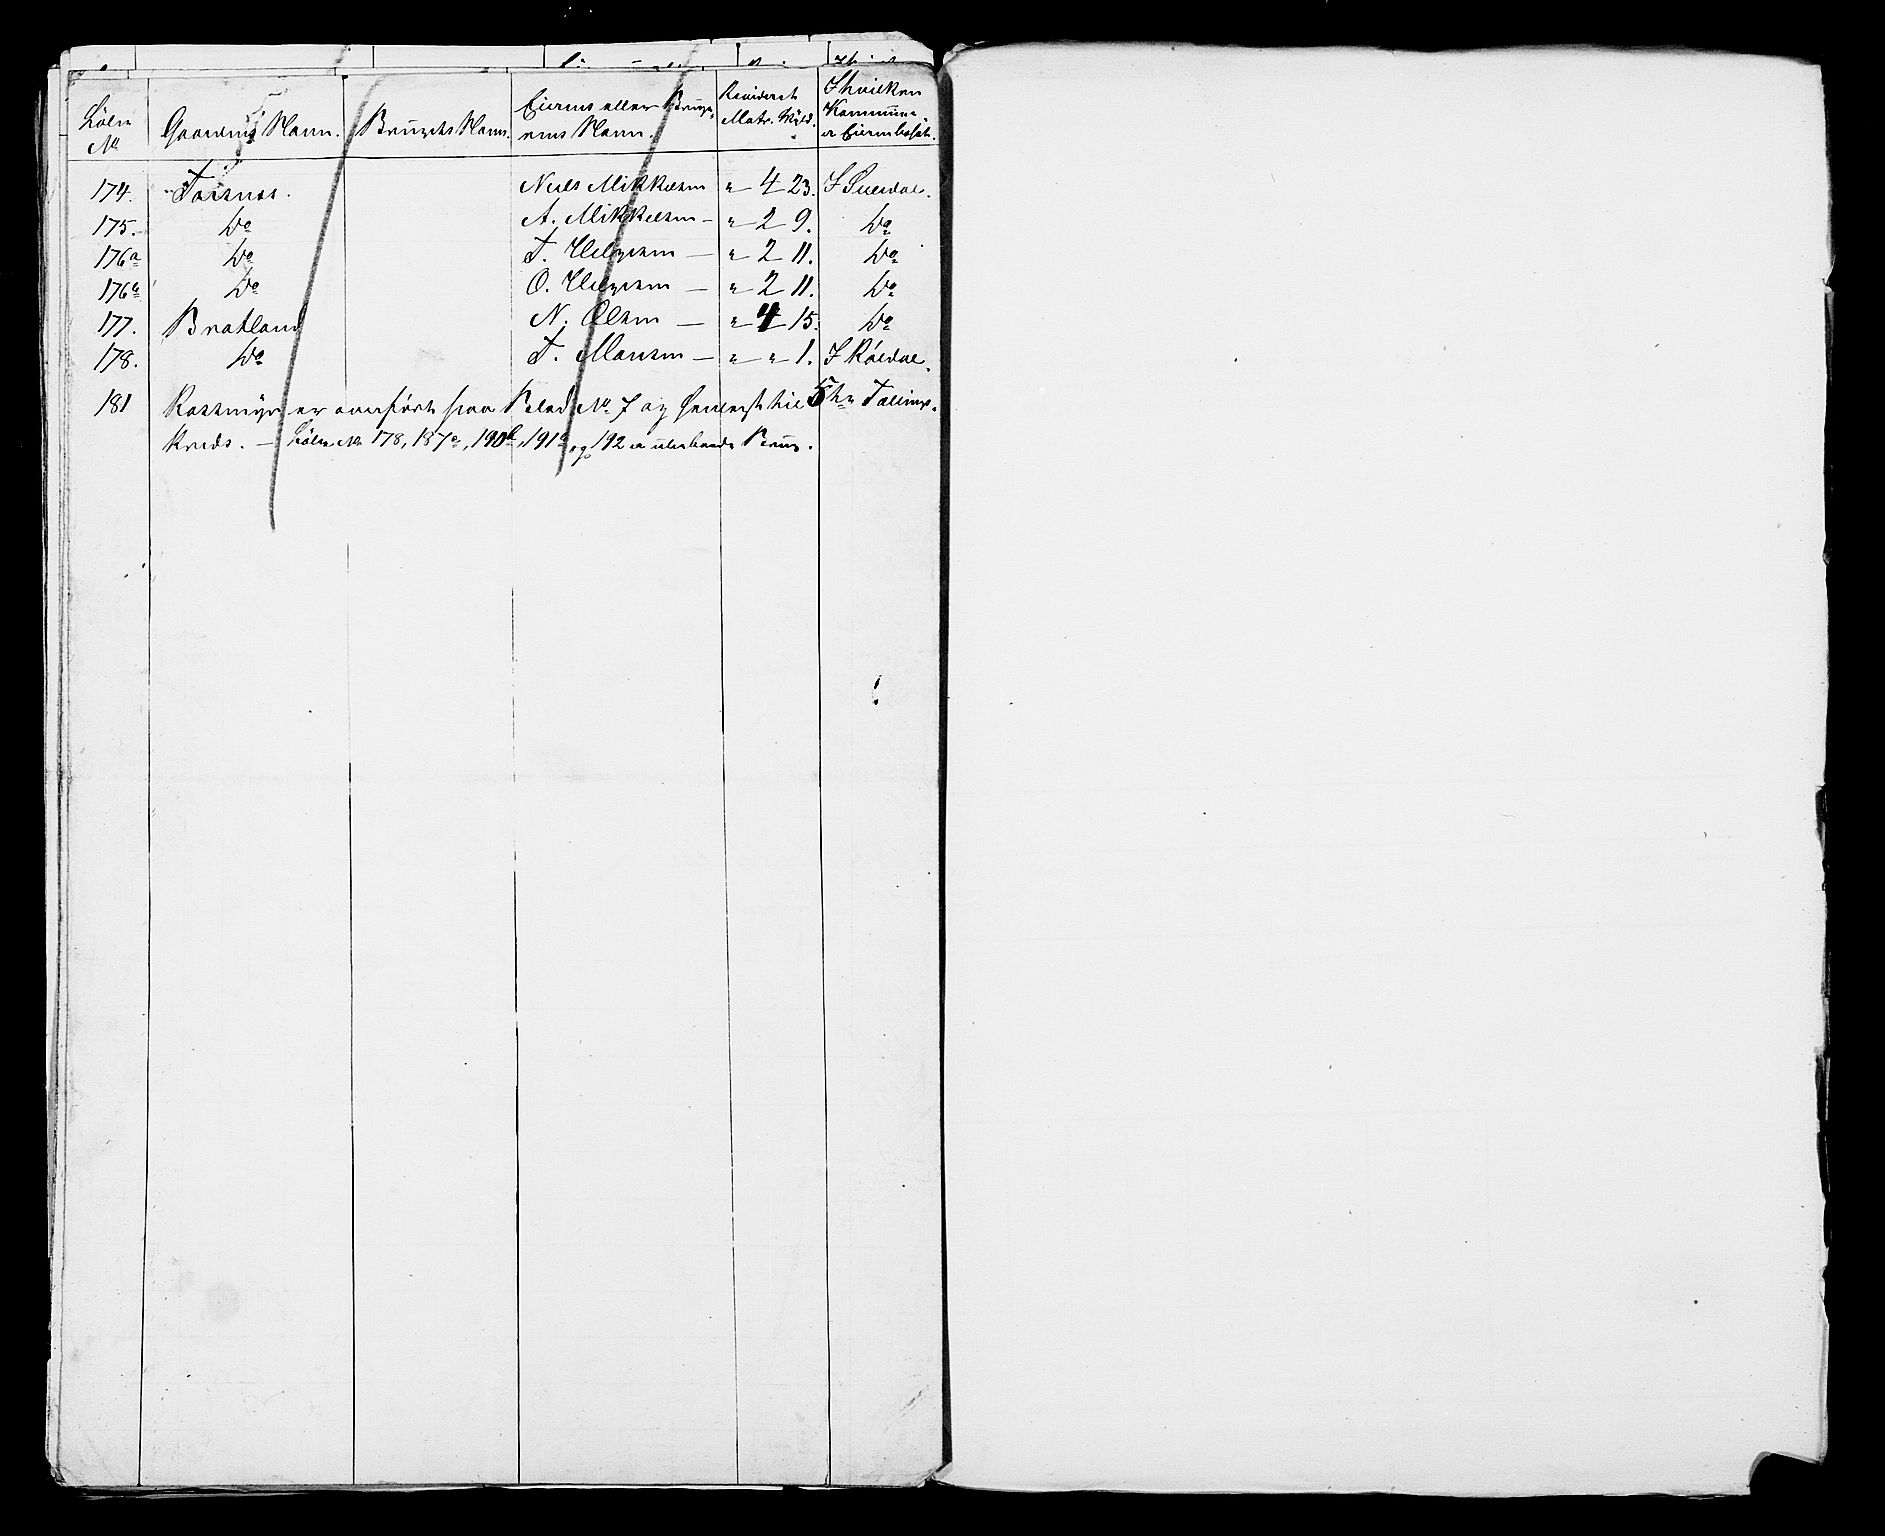 Løbe No | Gaardens Navn. | Brugets Navn. | Eierens eller Brugerens Navn. | Revideret Matr. Skyld. | I hvilken Kommune er Eieren bosat.
174. Ta Niels Mikkelsen " 4 23. I Suledal.
175. Do A. Mikkelsen – " 2 9. Do
176a Do T. Helgesen – " 2 11. Do
176b Do O. Helgesen – " 2 11. Do
177. Bratland N. Olsen – " 4 15. Do
178. Do T. Monsen – " " 1. I Røldal.
181 Rossmyr er overført paa Blad No 7 og henlagt til 5te Tællings-
kreds. – Løbe No 178, 187a, 190b, 191a og 192 er ubeboede Brug.